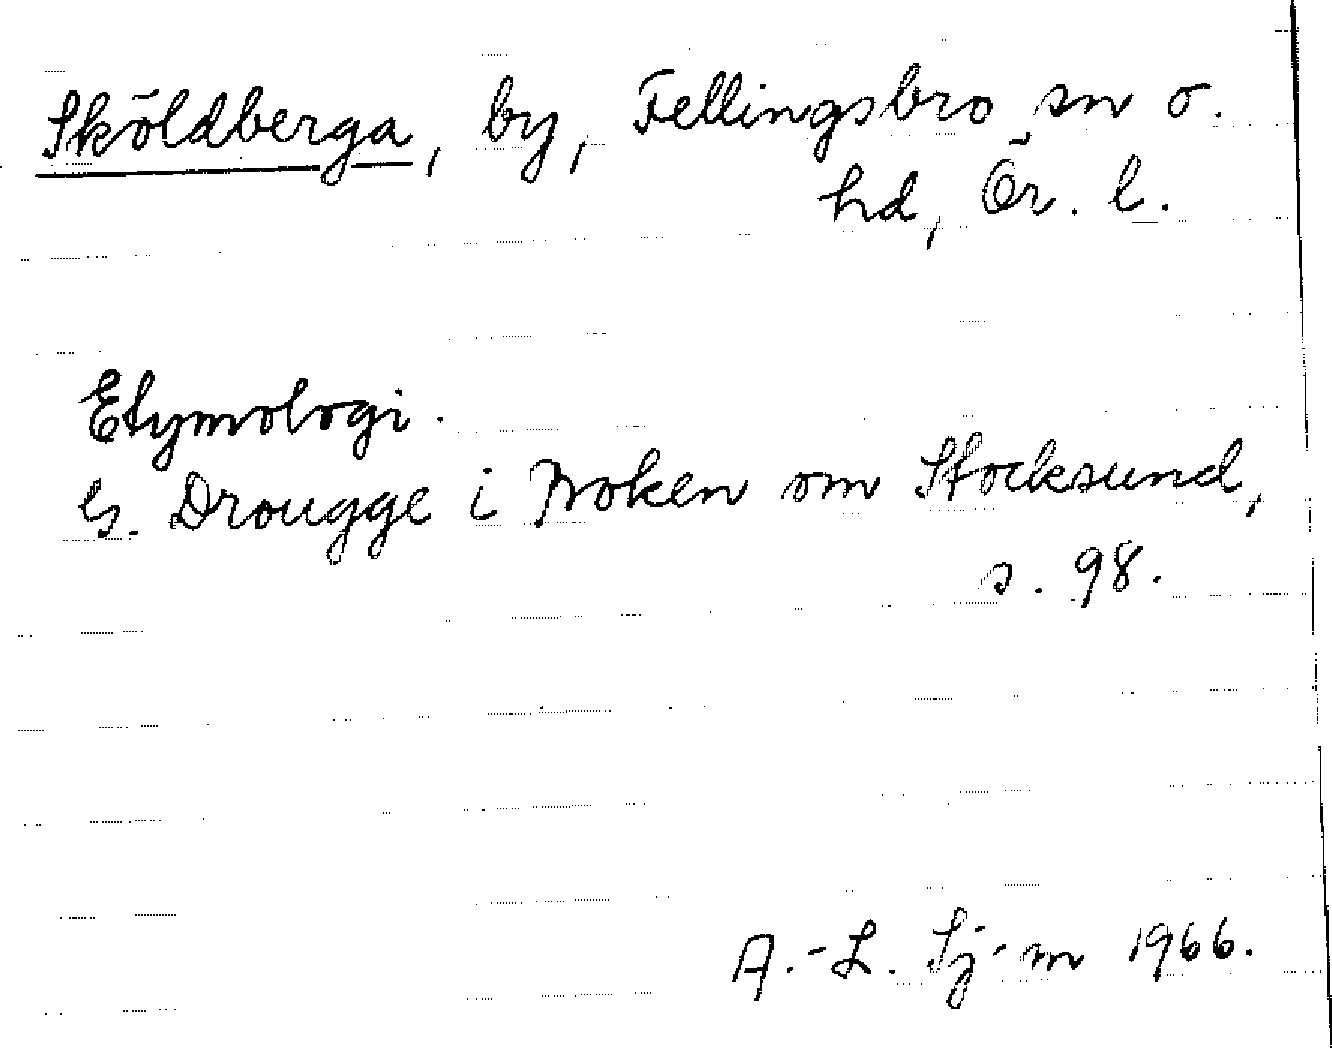 Sköldberga, by, Fellingsbro sn o.
hd, Ör. l.
Etymologi.
G. Drougge i Boken om Stocksund,
s. 98.
A.-L. Sj-m 1966.